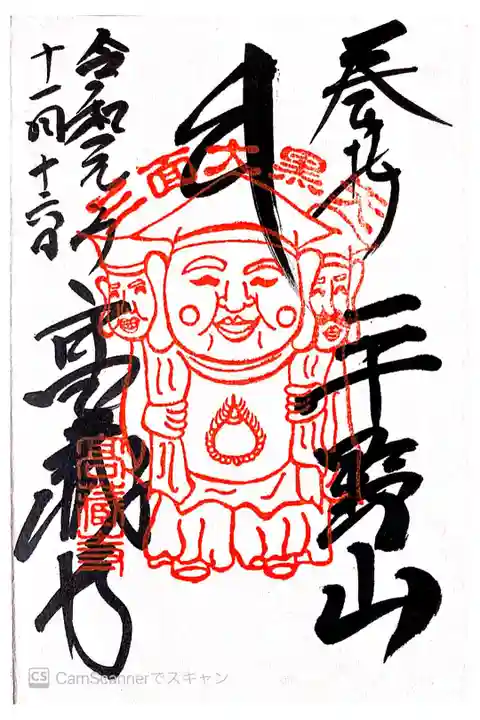 奉拝
平野山
三面大黒天
高蔵寺
令和元年
十一月
高蔵寺
CS CamScannerでスキャン